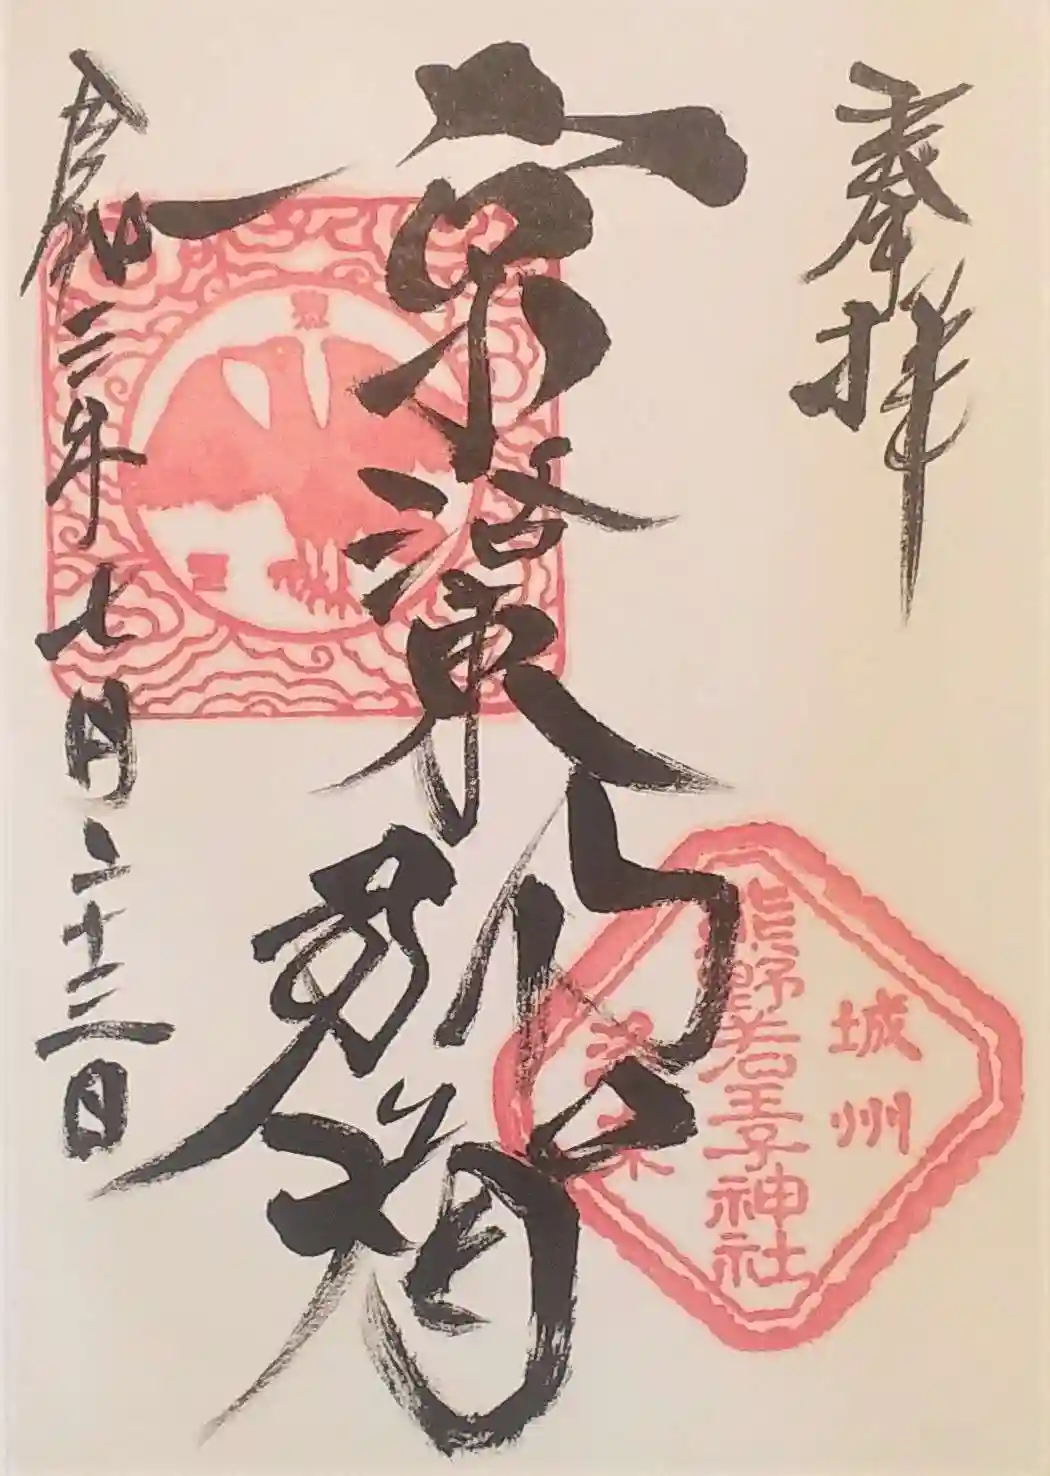 奉拝
京洛東
那智
城州
熊野若王子神社
洛東
令和二年七月二十三日